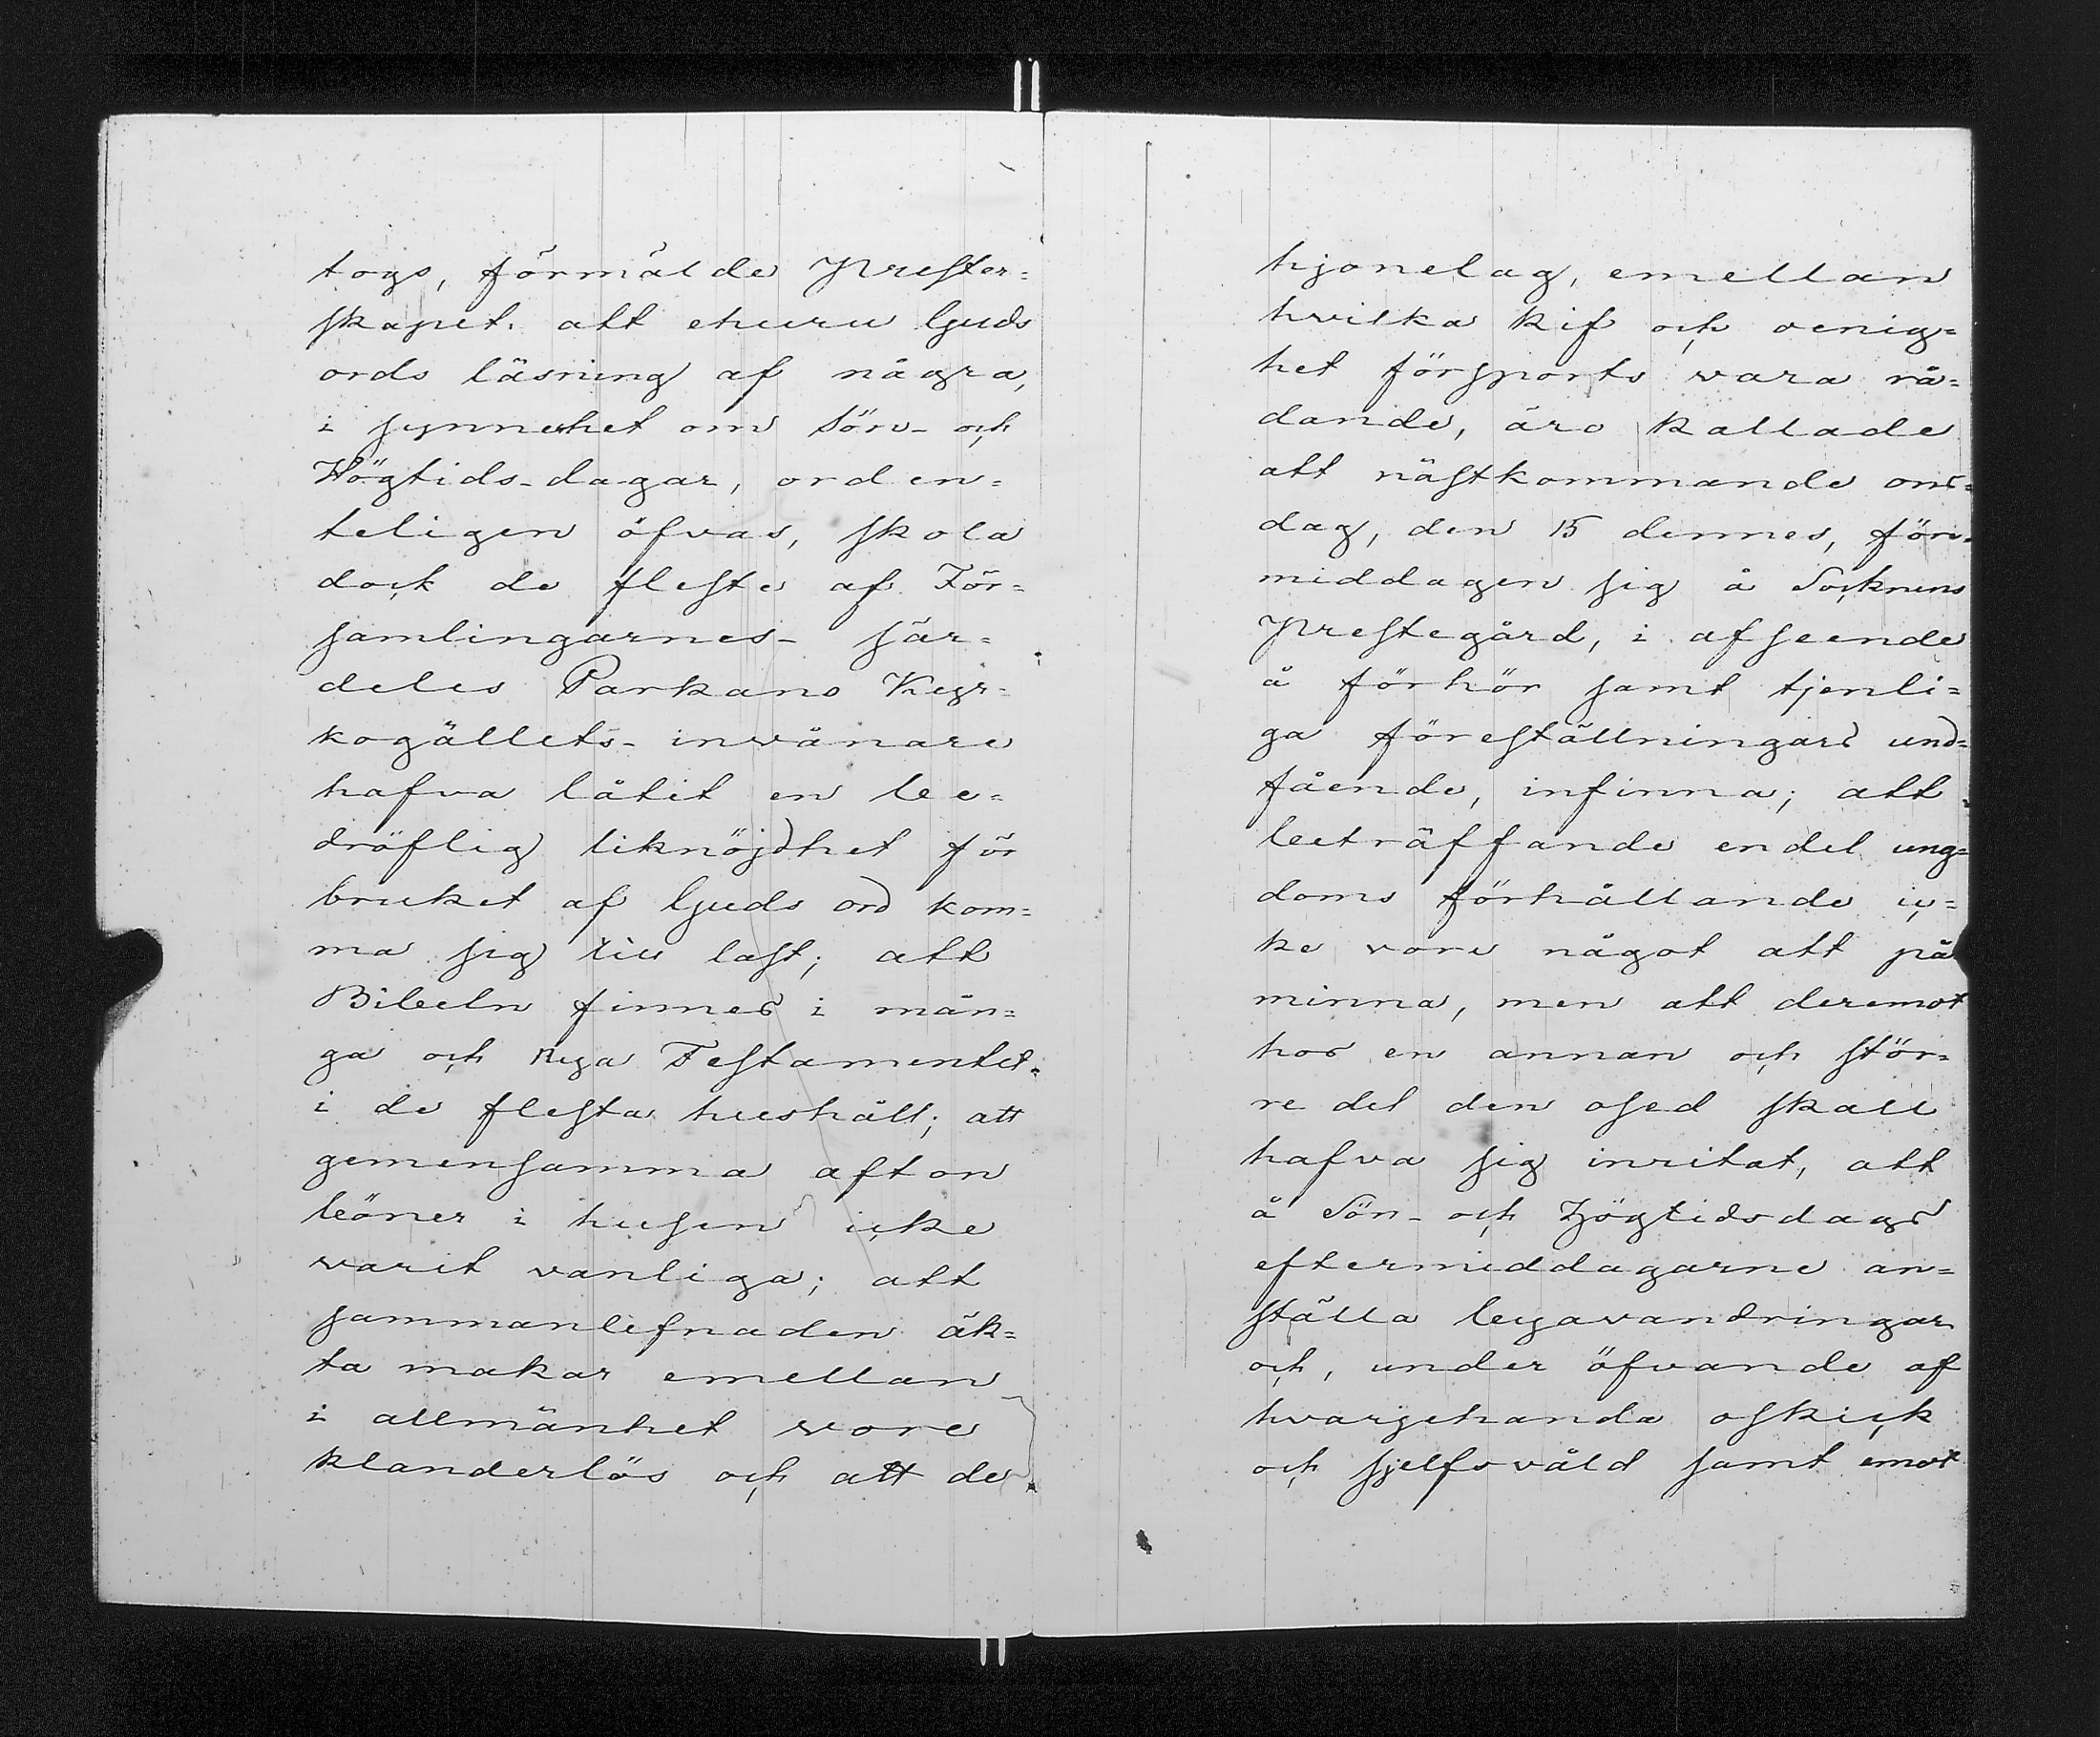 togs, förmälde Prester=
skapet. att ehuru Guds
ords läsning af några,
i synnerhet om Sön- och
Högtids-dagar, orden=
teligen öfvas, skola
dock de fleste af För=
samlingarnes- sär=
deles Parkano Kyr=
kogällets- invånare
hafva låtit en be=
dröflig liknöjdhet för
bruket af Guds ord kom=
ma sig till last; att
Bibeln finnes i mån=
ga och Nya Testamentet
i de flesta hushåll; att
gemensamma afton
böner i husen icke
varit vanliga; att
sammanlefnaden äk=
ta makar emellan
i allmänhet vore
klanderlös och att de
hjonelag, emellan
hvilka kif och oenig=
het försports vara rå=
dande, äro kallade
att nästkommande ons=
dag, den 15 dennes, för=
middagen sig å Socknens
Prestegård, i afseende
å förhör samt tjenli=
ga föreställningars und=
fående, infinna; att
beträffande endel ung=
doms förhållande ic=
ke vore något att på
minna, men att deremot
hos en annan och stör=
re del den osed skall
hafva sig inritat, att
å Sön- och Högtidsdags
eftermiddagarne an=
ställa byavandringar
och, under öfvande af
hvarjehanda oskick
och sjelfsvåld samt emot